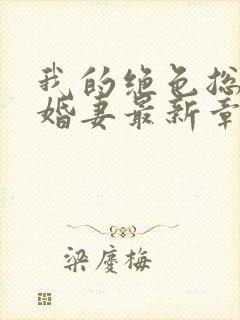 我的绝色总
婚妻最新章
梁庆梅